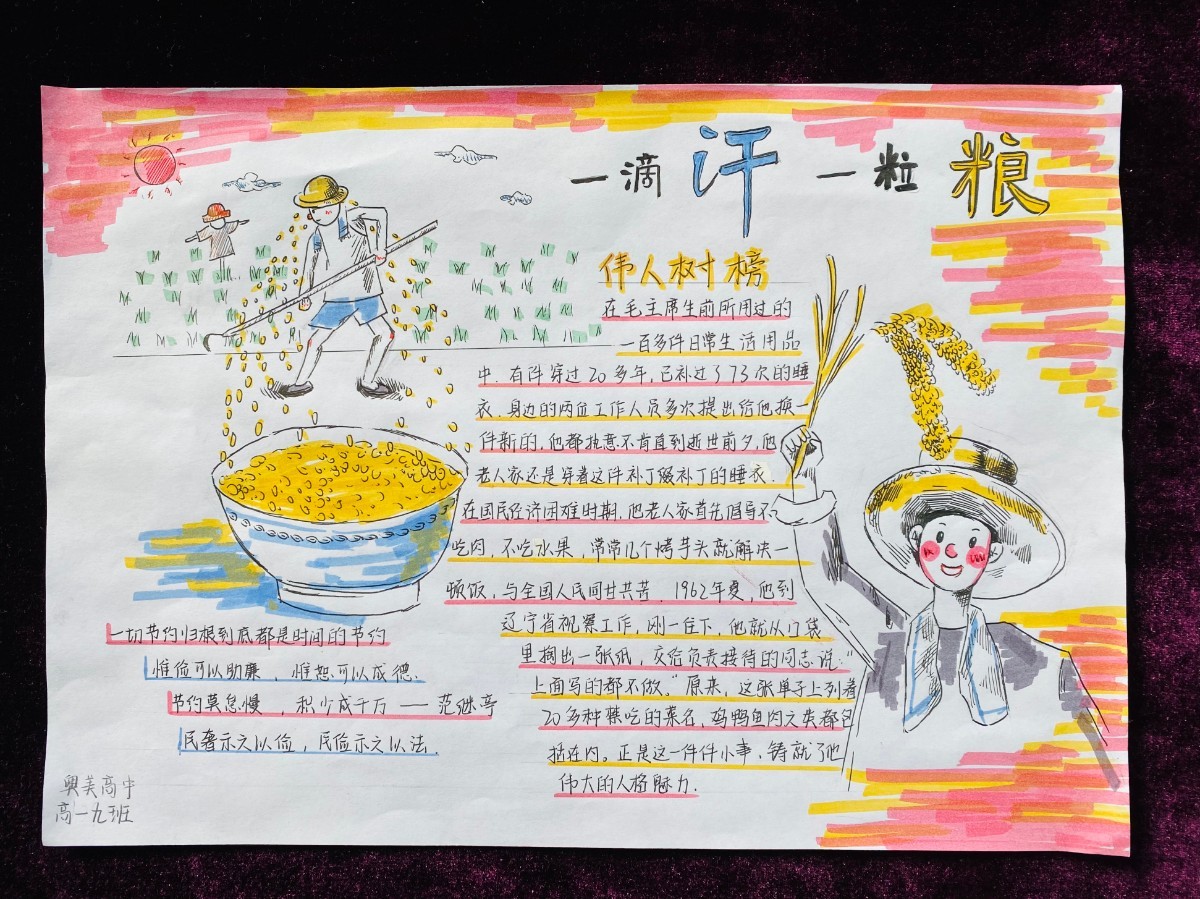 一滴汗一粒粮
伟人树榜
在毛主席生前所用过的
一百多件日常生活用品
中,有件穿过20多年,已补过了73次的睡
衣.身边的两位工作人员多次提出给他换一
件新的,他都执意不肯直到逝世前夕,他
老人家还是穿着这件补丁缀补丁的睡衣.
在国民经济困难时期,他老人家首先倡导不
吃肉,不吃水果,常常几个烤芋头就解决一
顿饭,与全国人民同甘共苦.1962年夏,他到
辽宁省视察工作,刚一住下,他就从口袋
里掏出一张纸,交给负责接待的同志说:"
上面写的都不做."原来,这张单子上列着
20多种禁吃的菜名,鸡鸭鱼肉之类都包
括在内.正是这一件件小事,铸就了他
伟大的人格魅力.
一切节约归根到底都是时间的节约
惟俭可以助廉,惟恕可以成德.
节约莫怠慢,积少成千万——范继亭
民奢示之以俭,民俭示之以法.
興美高中
高一九班